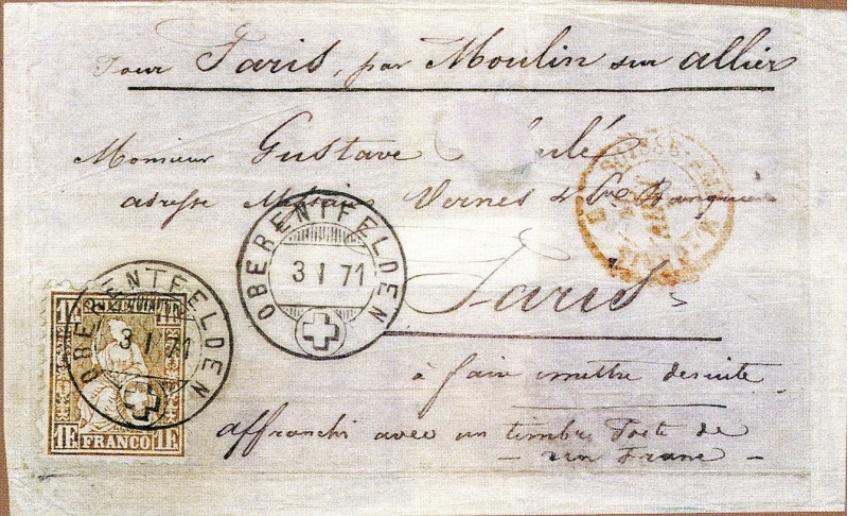 Pour Paris, par Moulin sur allier
Monsieur Gustave
adresse Messieurs Vernes & Banquiers
OBERENTFELDEN
3 I 71
Paris
OBERENTFELDEN
3 I 71
à faire mettre desuite
affranchi avec un timbre Poste de
un Franc
1F FRANCO 1F